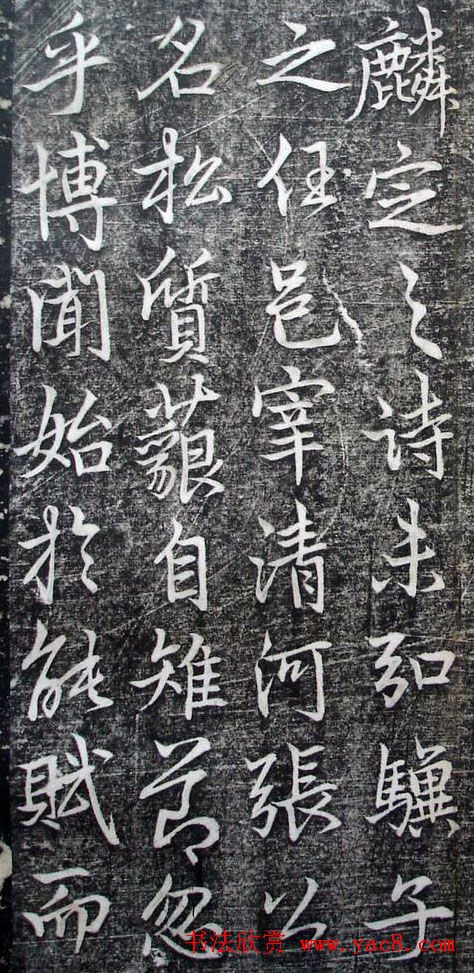 麟定之詩未弘驥子
之任邑宰清河張公
名松質藐自雉節忽
乎博聞始於能賦而
书法欣赏 www.yac8.com